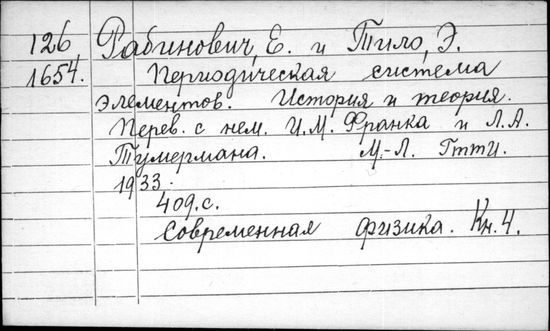 126 Рабинович, Е. и Тило, Э.
1654. Периодическая система
элементов. История и теория.
Перев. с нем. И.М. Франка и Л.А.
Тумермана. М.-Л. Гтти.
1933.
409.с.
Современная физика. Кн. 4.